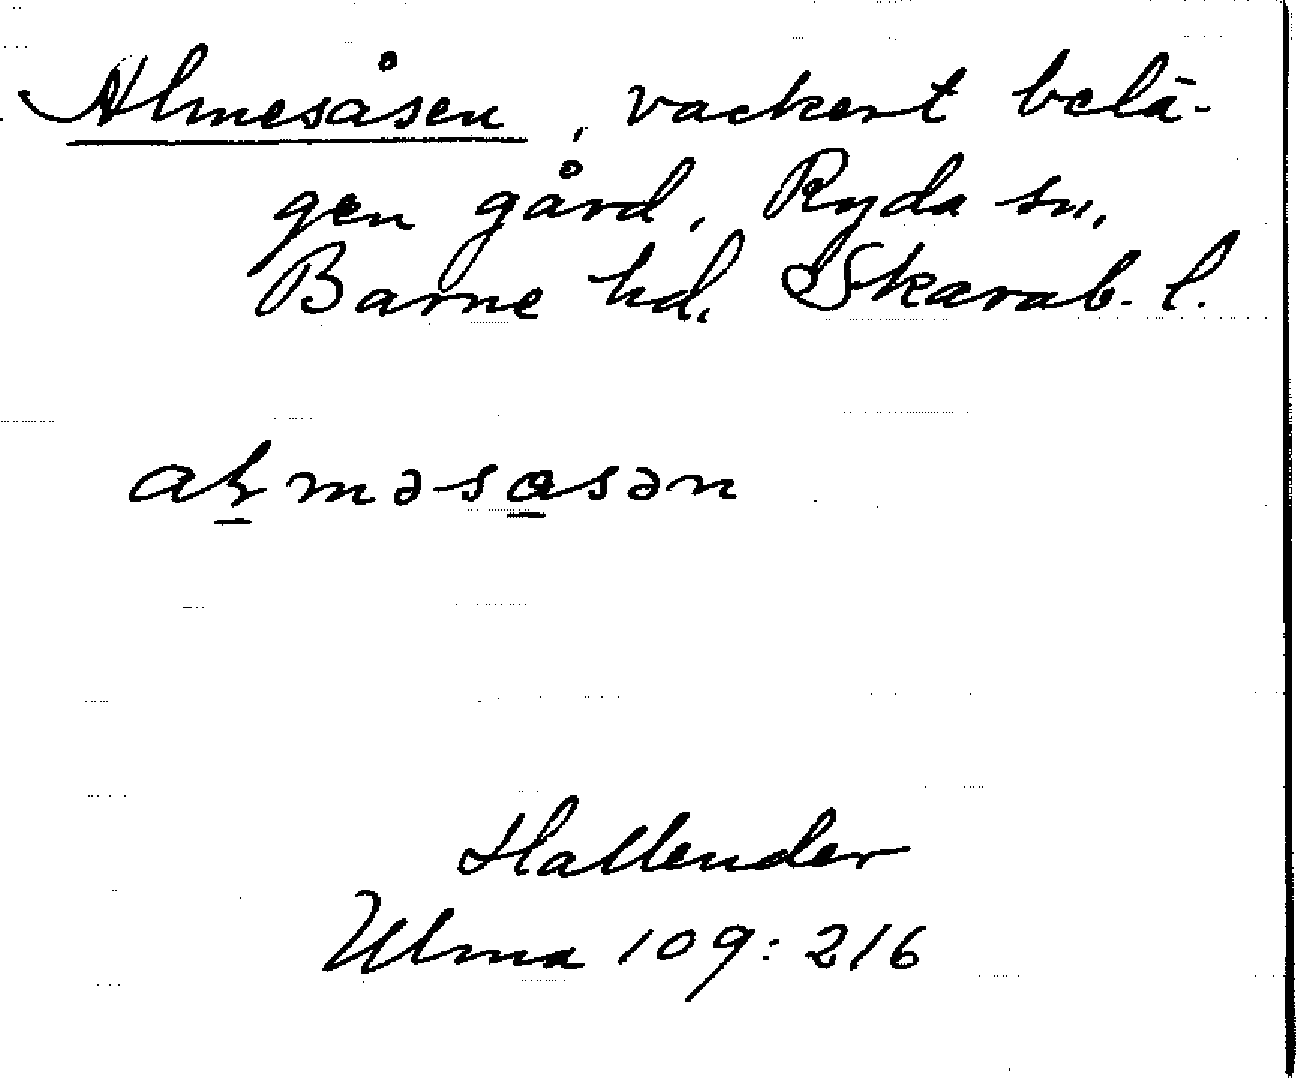 Almesåsen, vackert belä-
gen gård, Ryda sn,
Barne hd. Skarab. l.
Hallender
Ulma 109:216